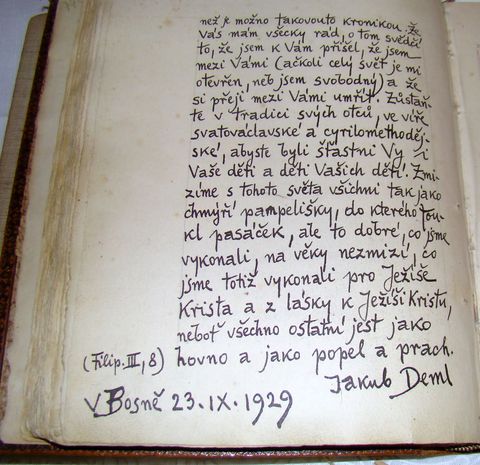 než je možno takovouto kronikou. Že
Vás mám všecky rád, o tom svědčí
to, že jsem k Vám přišel, že jsem
mezi Vámi (ačkoli celý svět je mi
otevřen, neb jsem svobodný) a že
si přeji mezi Vámi umřít. Zůstaň-
te v tradici svých otců, ve víře
svatováclavské a cyrilometoděj-
ské, abyste byli šťastni Vy i
Vaše děti a děti Vašich dětí. Zmi-
zíme s tohoto světa všichni tak jako
chmýří pampelišky, do kterého fou-
kl pasáček, ale to dobré, co jsme
vykonali, na věky nezmizí, co
jsme totiž vykonali pro Ježíše
Krista a z lásky k Ježíši Kristu,
neboť všechno ostatní jest jako
(Filip. III, 8) hovno a jako popel a prach.
Jakub Deml
V Bosně 23.IX.1929